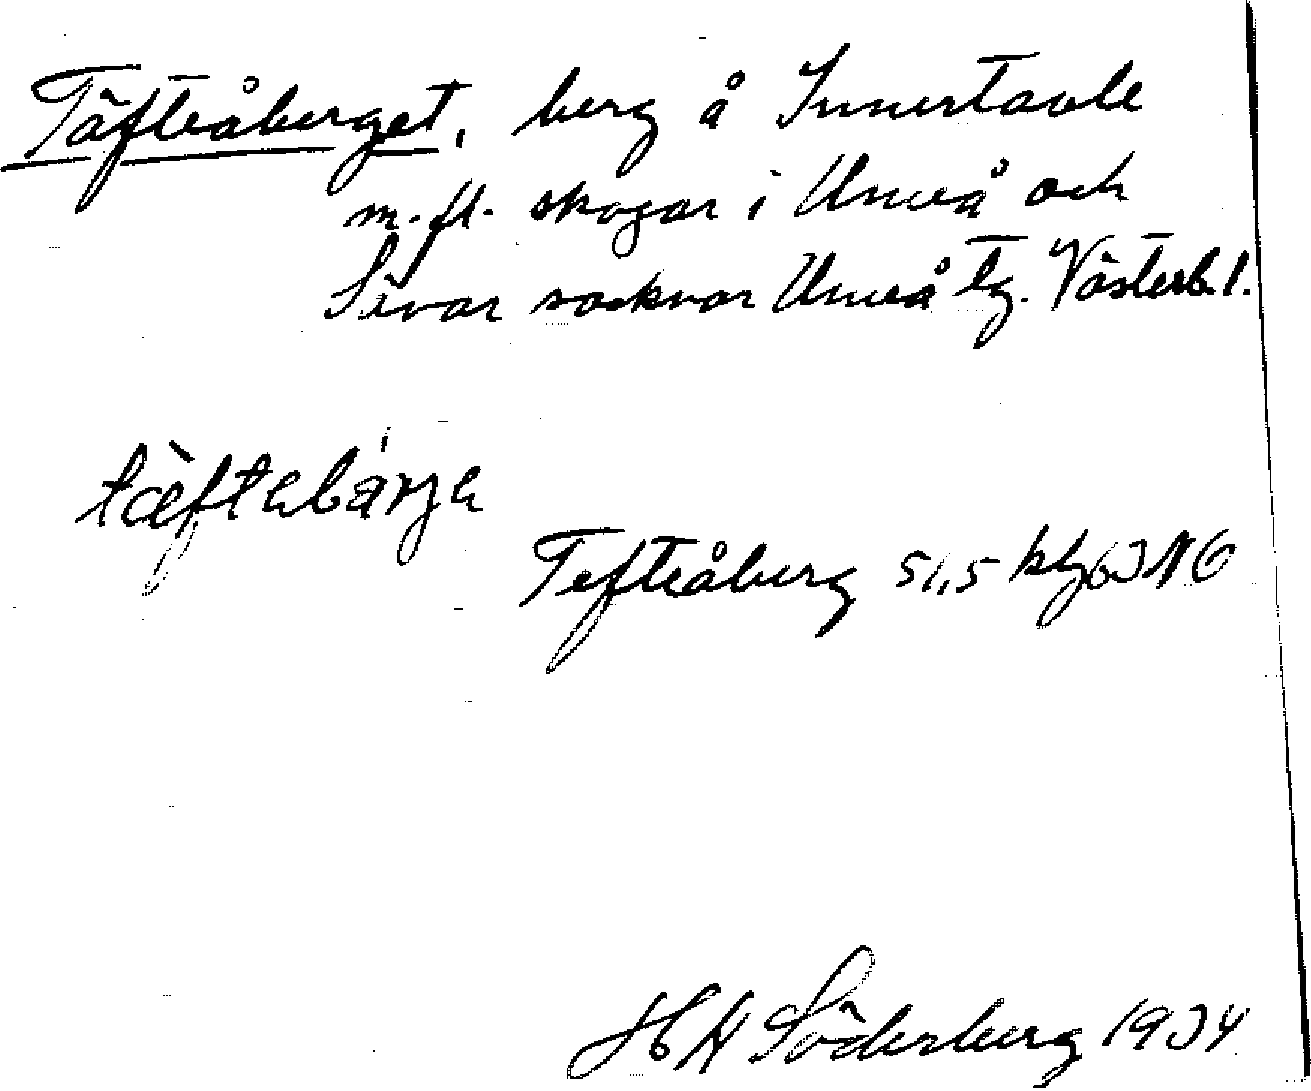 Täfteåberget, berg å Innertavle
m. fl. skogar i Umeå och
Sävar socknar Umeå tg. Västerb. l.
Tefteåberg 51,5
HN Söderberg 1934